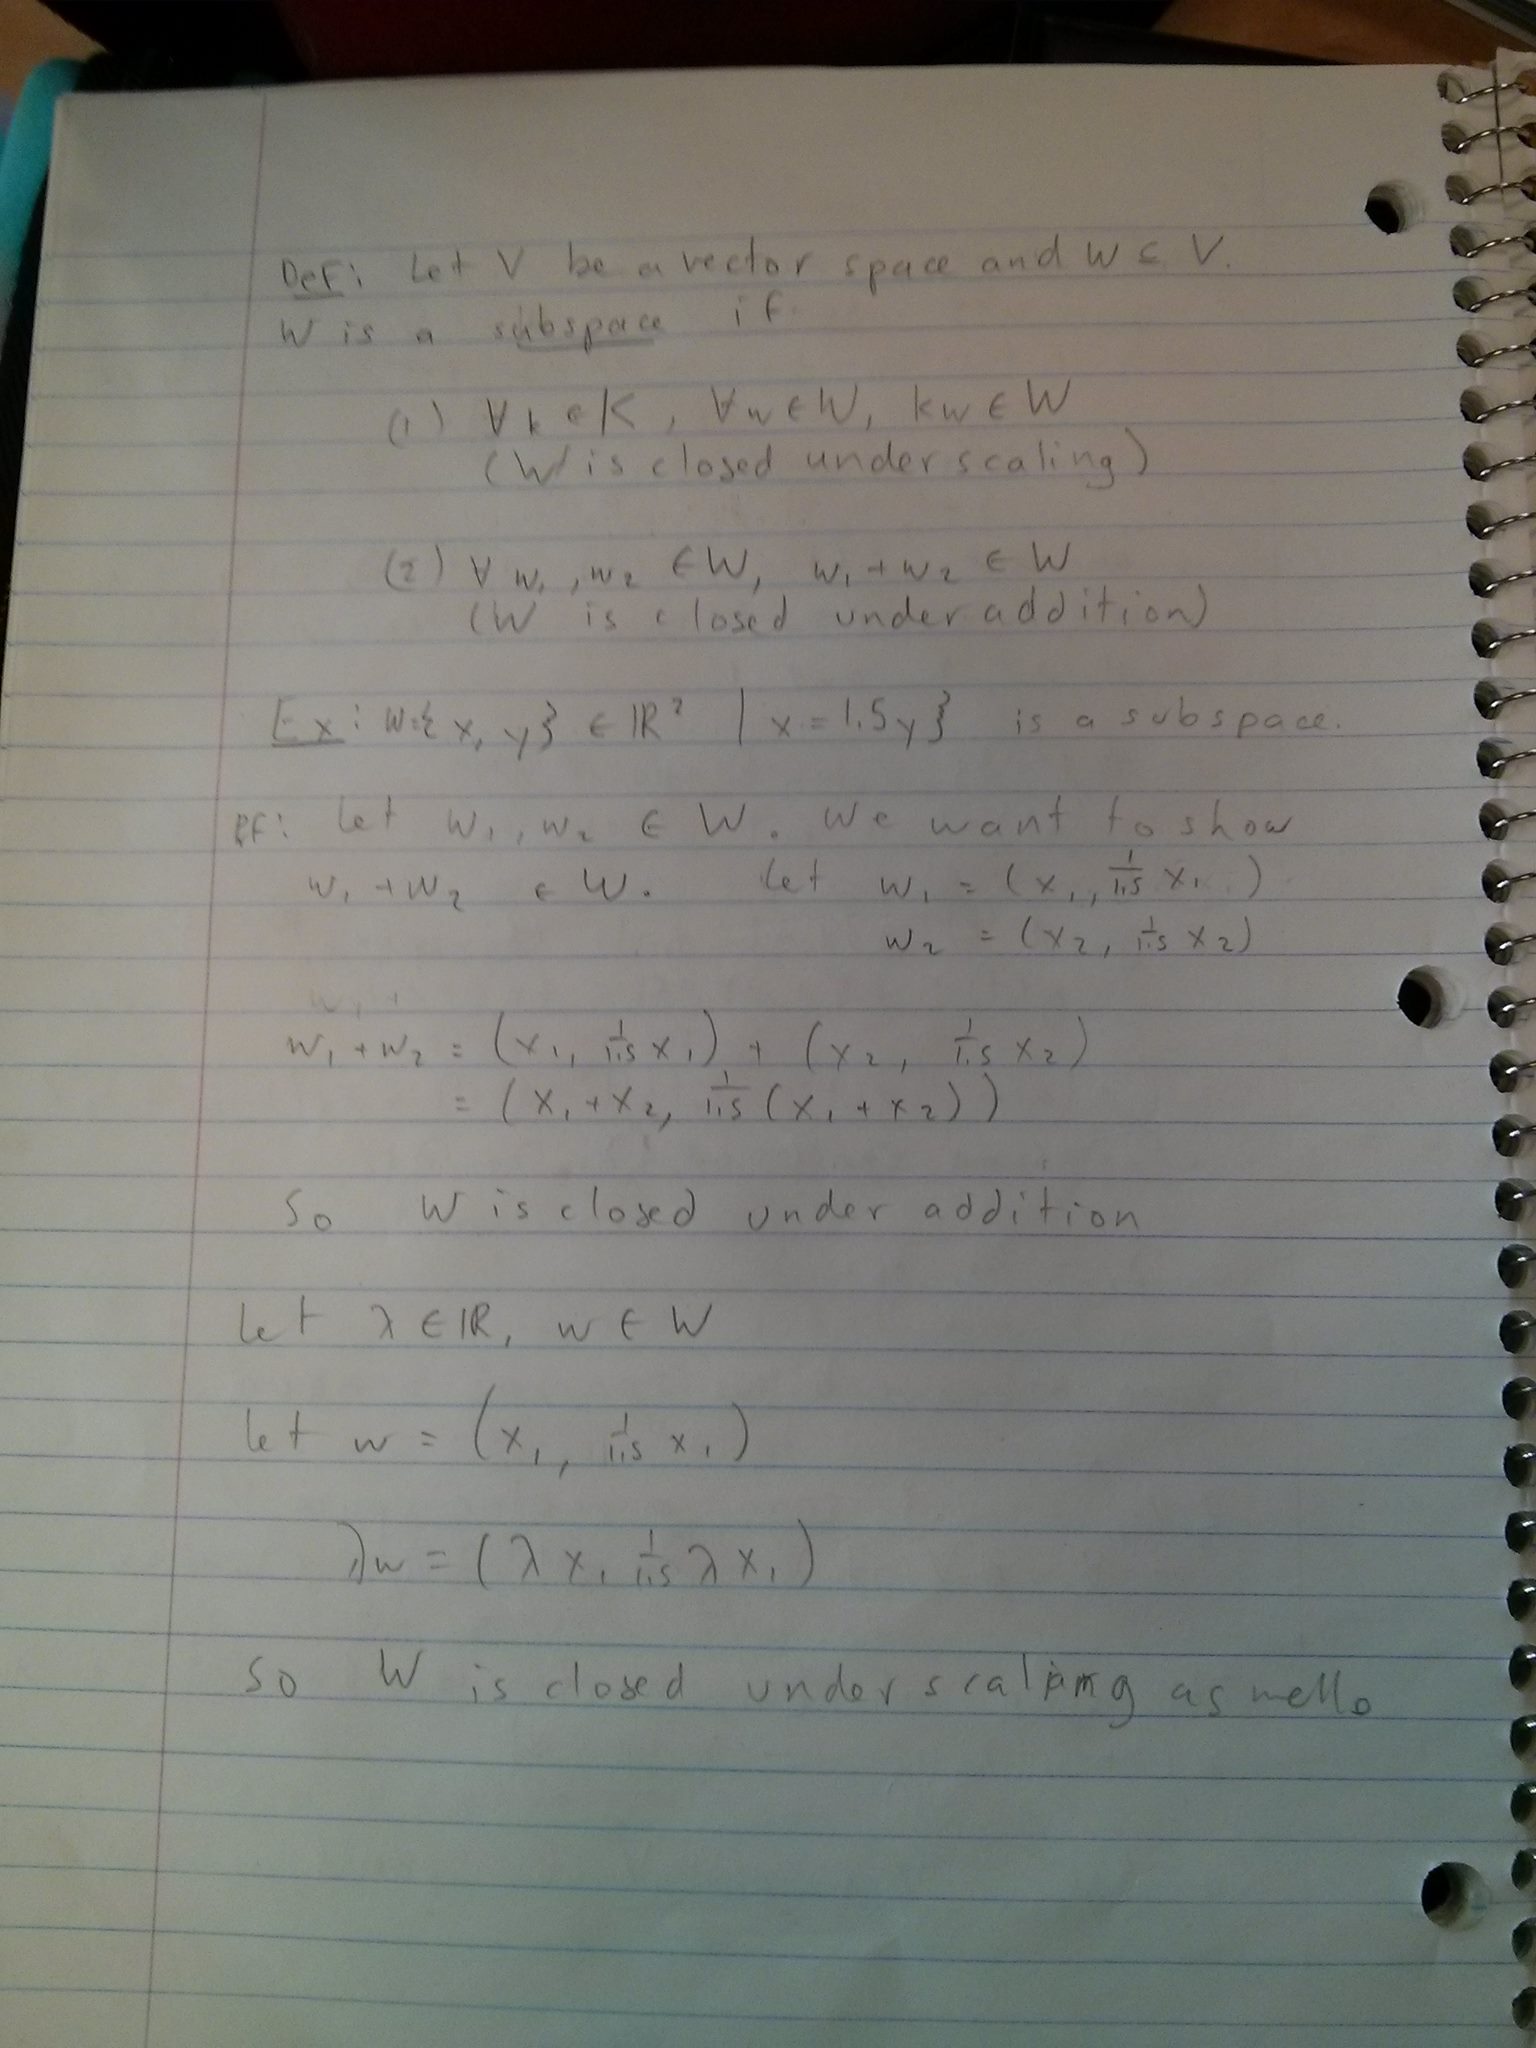 Def: Let V be a vector space and W ⊂ V.
W is a subspace if
(1) ∀k ∈ K, ∀w ∈ W, kw ∈ W
(W is closed under scaling)
(2) ∀ w₁, w₂ ∈ W, w₁ + w₂ ∈ W
(W is closed under addition)
Ex: W={x, y} ∈ ℝ² | x = 1.5y} is a subspace.
Pf: Let w₁, w₂ ∈ W. We want to show
w₁ + w₂ ∈ W. Let w₁ = (x₁, 1/1.5 x₁)
w₂ = (x₂, 1/1.5 x₂)
w₁ +
w₁ + w₂ = (x₁, 1/1.5 x₁) + (x₂, 1/1.5 x₂)
= (x₁ + x₂, 1/1.5 (x₁ + x₂))
So W is closed under addition
Let λ ∈ ℝ, w ∈ W
Let w = (x₁, 1/1.5 x₁)
λw = (λ x₁ 1/1.5 λ x₁)
So W is closed under scaling as well.